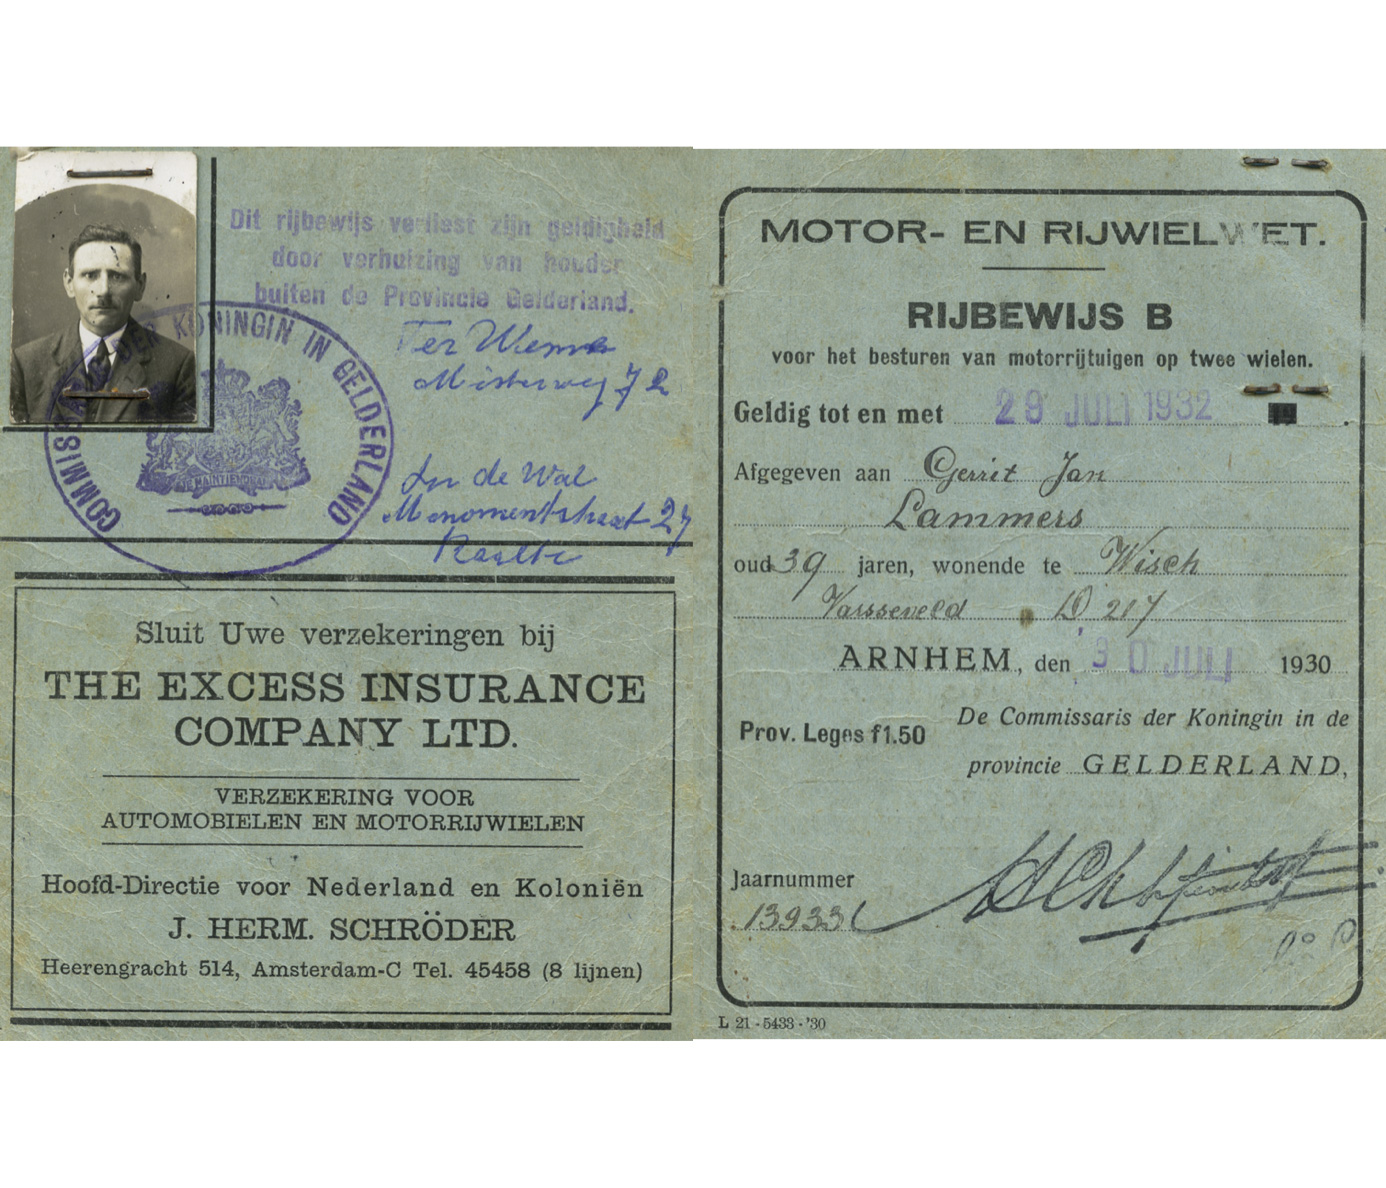 Dit rijbewijs verliest zijn geldigheid
door verhuizing van houder
buiten de Provincie Gelderland.
COMMISSARIS DER KONINGIN IN GELDERLAND
JE MAINTIENDRAI
Ter
Misterweg 72
de Wal
27
Raalte
Sluit Uwe verzekeringen bij
THE EXCESS INSURANCE
COMPANY LTD.
VERZEKERING VOOR
AUTOMOBIELEN EN MOTORRIJWIELEN
Hoofd-Directie voor Nederland en Koloniën
J. HERM. SCHRÖDER
Heerengracht 514, Amsterdam-C Tel. 45458 (8 lijnen)
MOTOR- EN RIJWIELWET.
RIJBEWIJS B
voor het besturen van motorrijtuigen op twee wielen.
Geldig tot en met 29 JULI 1932
Afgegeven aan Gerrit Jan
Lammers
oud 39 jaren, wonende te Wisch
Varsseveld D 217
ARNHEM, den 30 JULI 1930
Prov. Leges f1.50
De Commissaris der Koningin in de
provincie GELDERLAND,
Jaarnummer
13933
L 21 - 5433 - '30